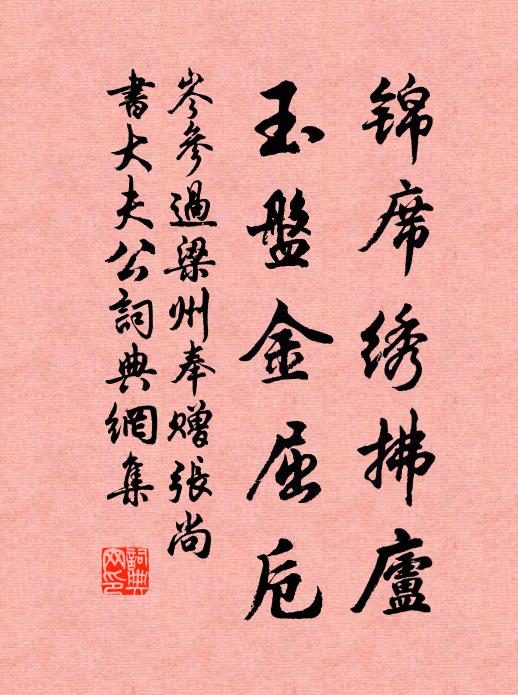 锦席绣拂廬
玉盤金屈卮
岑參過梁州奉赠張尚
書大夫公詞典網集
詞典
网印